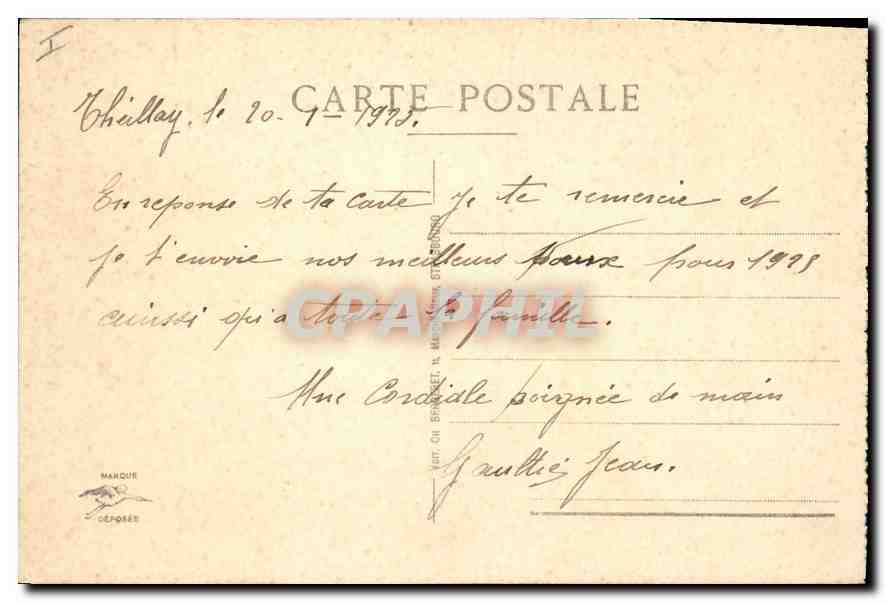 I
CARTE POSTALE
Theillay, le 20-1-1925.
En reponse de ta carte je te remercie et
je t'envoie nos meilleurs vœux pour 1925
ainsi qu'a toute la famille.
Une Cordiale poignée de main
Gaultier Jean.
EDIT. CH. BERGERET, STRASBOURG
MARQUE
DÉPOSÉE
CPAPHIL